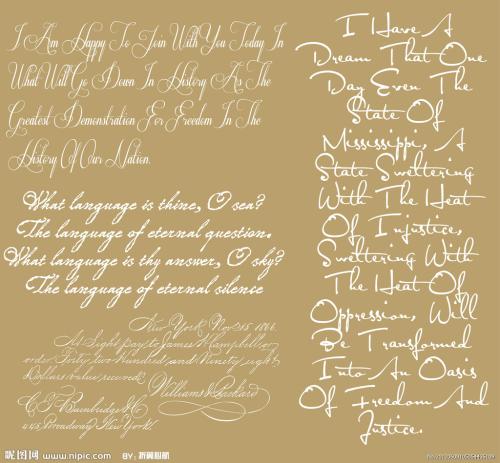 I Am Happy To Join With You Today In
What Will Go Down In History As The
Greatest Demonstration For Freedom In The
History Of Our Nation.
What language is thine, O sea?
The language of eternal question.
What language is thy answer, O sky?
The language of eternal silence
New York, Nov 15 1866.
At Sight pay to James H Campbell or
order Forty two Hundred and Ninety eight
Dollars value received,
Williams & Packard
C. T. Bainbridge & Co
445, Broadway New York
I Have A
Dream That One
Day Even The
State Of
Mississippi, A
State Sweltering
With The Heat
Of Injustice,
Sweltering With
The Heat Of
Oppression, Will
Be Transformed
Into An Oasis
Of Freedom And
Justice.
昵图网 www.nipic.com BY: